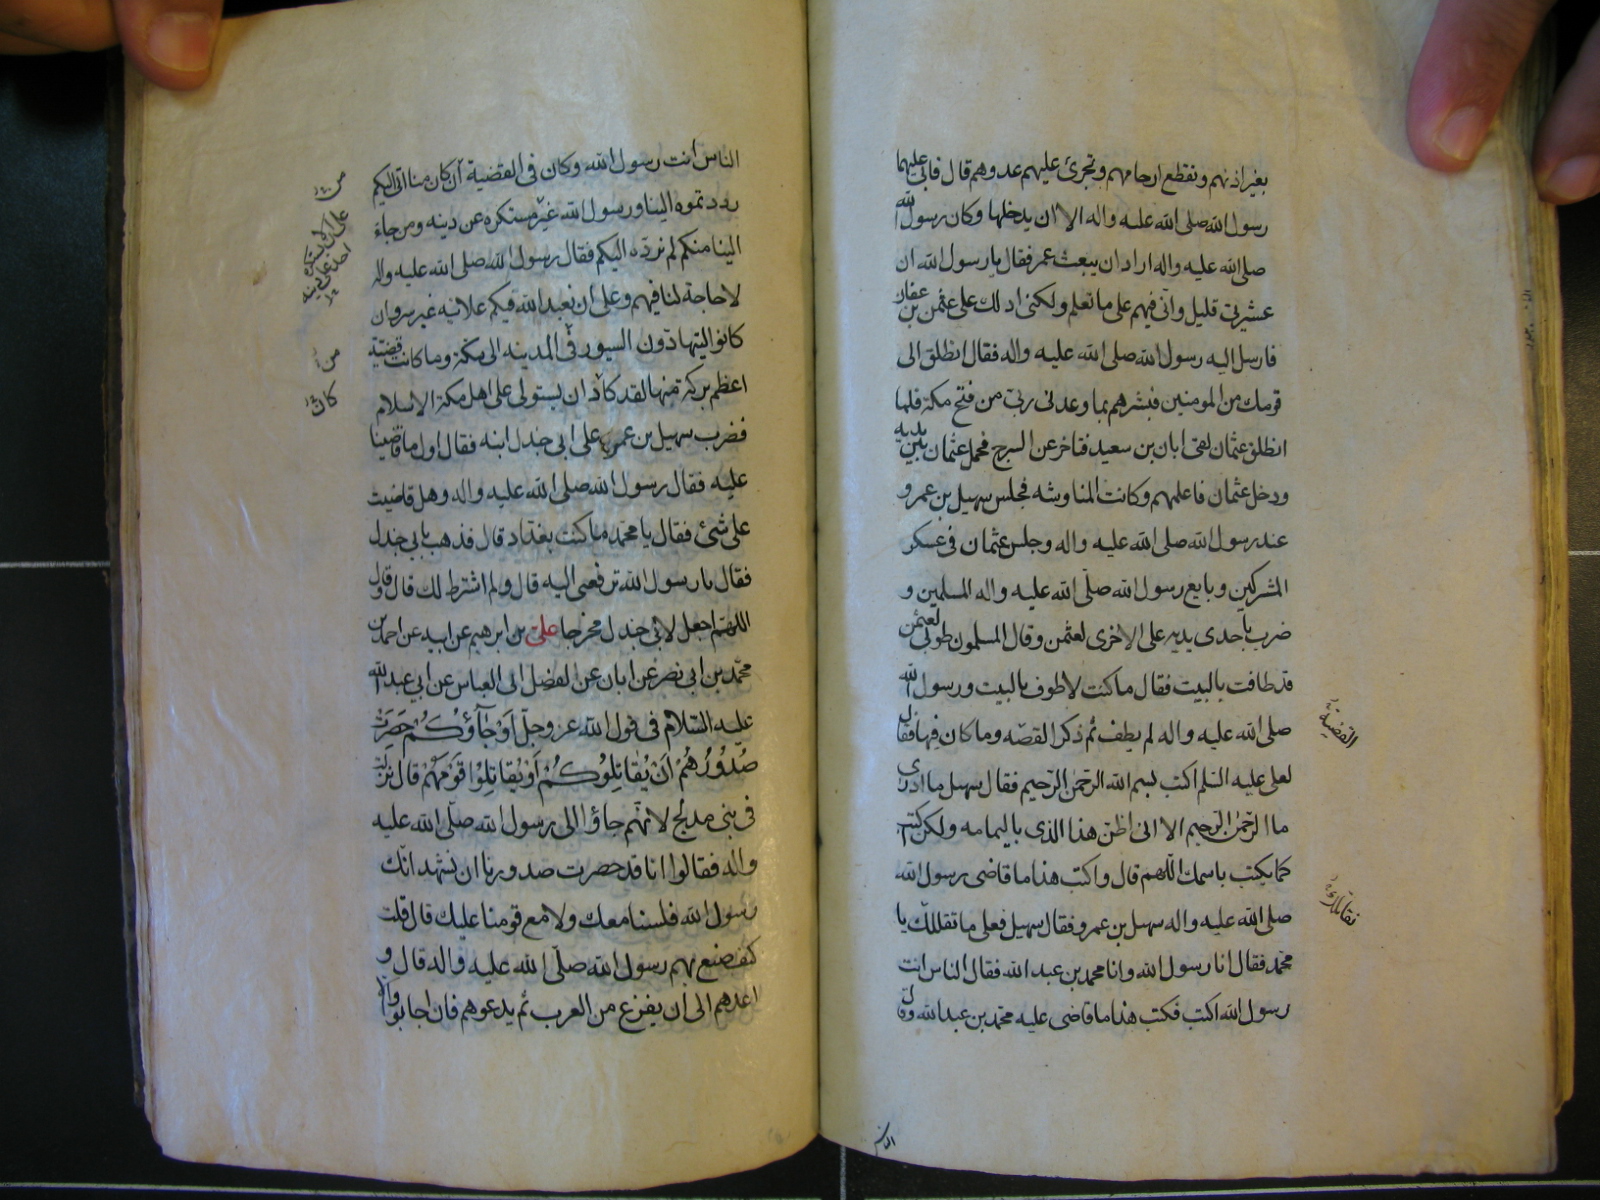 بغير اذنهم ونقطع ارحامهم وتجرئ عليهم عدوهم قال فابى عليهما
رسول الله صلى الله عليه واله الا ان يدخلها وكان رسول الله
صلى الله عليه واله اراد ان يبعث عمر فقال يا رسول الله ان
عشيرتى قليل وانى فيهم على ما تعلم ولكنى ادلك على عثمن بن عفان
فارسل اليه رسول الله صلى الله عليه واله فقال انطلق الى
قومك من المومنين فبشرهم بما وعدنى ربى من فتح مكة فلما
انطلق عثمان لقى ابان بن سعيد فتاخر عن السرج فحمل عثمان بين يديه
ودخل عثمان فاعلمهم وكانت المناوشه فجلس سهيل بن عمرو
عند رسول الله صلى الله عليه واله وجلس عثمان فى عسكر
المشركين وبايع رسول الله صلى الله عليه واله المسلمين و
ضرب باحدى يديه على الاخرى لعثمن وقال المسلمون طوبى لعثمن
قد طافت بالبيت فقال ما كنت لاطوف بالبيت ورسول الله
صلى الله عليه واله لم يطف ثم ذكر القصه وما كان فيها فقال
لعلى عليه السلم اكتب بسم الله الرحمن الرحيم فقال سهيل ما ادرى
ما الرحمن الرحيم الا انى اظن هذا الذى باليمامه ولكن اكتب
كما يكتب باسمك اللهم قال واكتب هذا ما قاضى رسول الله
صلى الله عليه واله سهيل بن عمرو فقال سهيل فعلى ما تقاتلك يا
محمد فقال انا رسول الله وانا محمد بن عبد الله فقال الناس انت
رسول الله اكتب فكتب هذا ما قاضى عليه محمد بن عبد الله وقال
القضية
الناس
الناس انت رسول الله وكان فى القضية ان كان منا اتى اليكم
رددتموه الينا ورسول الله غير مستكره عن دينه ومن جاء
الينا منكم لم نرده اليكم فقال رسول الله صلى الله عليه واله
لا حاجة لنا فيهم وعلى ان نعبد الله فيكم علانيه غير سر وان
كانوا ليتهادون السيور فى المدينه الى مكة وما كانت قضية
اعظم بركة منها لقد كاد ان يستولى على اهل مكة الاسلام
فضرب سهيل بن عمرو على ابى جندل ابنه فقال اول ما قاضينا
عليه فقال رسول الله صلى الله عليه واله وهل قاضيت
على شئ فقال يا محمد ما كنت بغداد قال فذهب بابى جندل
فقال يا رسول الله تدفعنى اليه قال ولم اشترط لك قال وقال
اللهم اجعل لابى جندل مخرجا على بن ابرهيم عن ابيه عن احمد بن
محمد بن ابى نصر عن ابان عن الفضل ابى العباس عن ابى عبد الله
عليه السلام فى قول الله عز وجل اَوْ جَاؤُكُمْ حَصِرَتْ
صُدُورُهُمْ اَنْ يُقَاتِلُوكُمْ اَوْ يُقَاتِلُوا قَوْمَهُمْ قال نزلت
فى بنى مدلج لانهم جاؤا الى رسول الله صلى الله عليه
واله فقالوا انا قد حصرت صدورنا ان نشهد انك
رسول الله فلسنا معك ولا مع قومنا عليك قال قلت
كيف صنع بهم رسول الله صلى الله عليه واله قال و
اعدهم الى ان يفرغ من العرب ثم يدعوهم فان اجابوا والا
من
من
كان